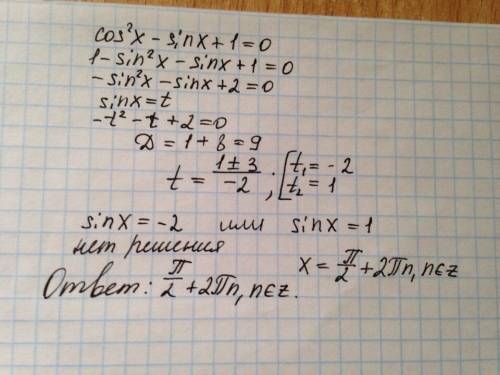 cos²x - sinx + 1 = 0
1 - sin²x - sinx + 1 = 0
-sin²x - sinx + 2 = 0
sinx = t
-t² - t + 2 = 0
D = 1 + 8 = 9
t = (1 ± 3)/(-2) ; [t₁ = -2
t₂ = 1
sinx = -2 или sinx = 1
нет решения
x = π/2 + 2πn, n∈z
Ответ: π/2 + 2πn, n∈z.